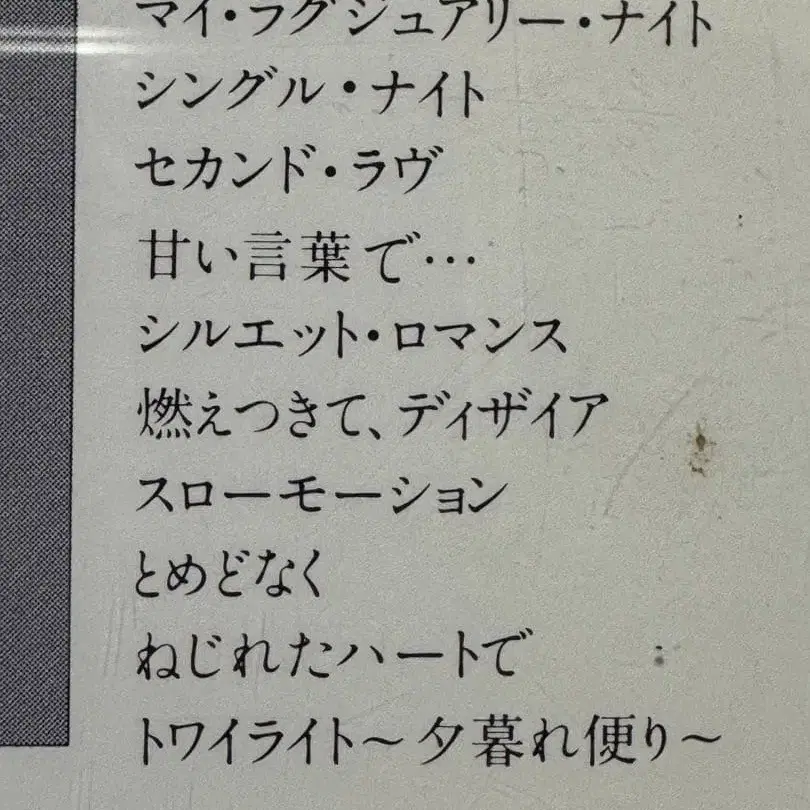 マイ・ラグジュアリー・ナイト
シングル・ナイト
セカンド・ラヴ
甘い言葉で…
シルエット・ロマンス
燃えつきて、ディザイア
スローモーション
とめどなく
ねじれたハートで
トワイライト～夕暮れ便り～